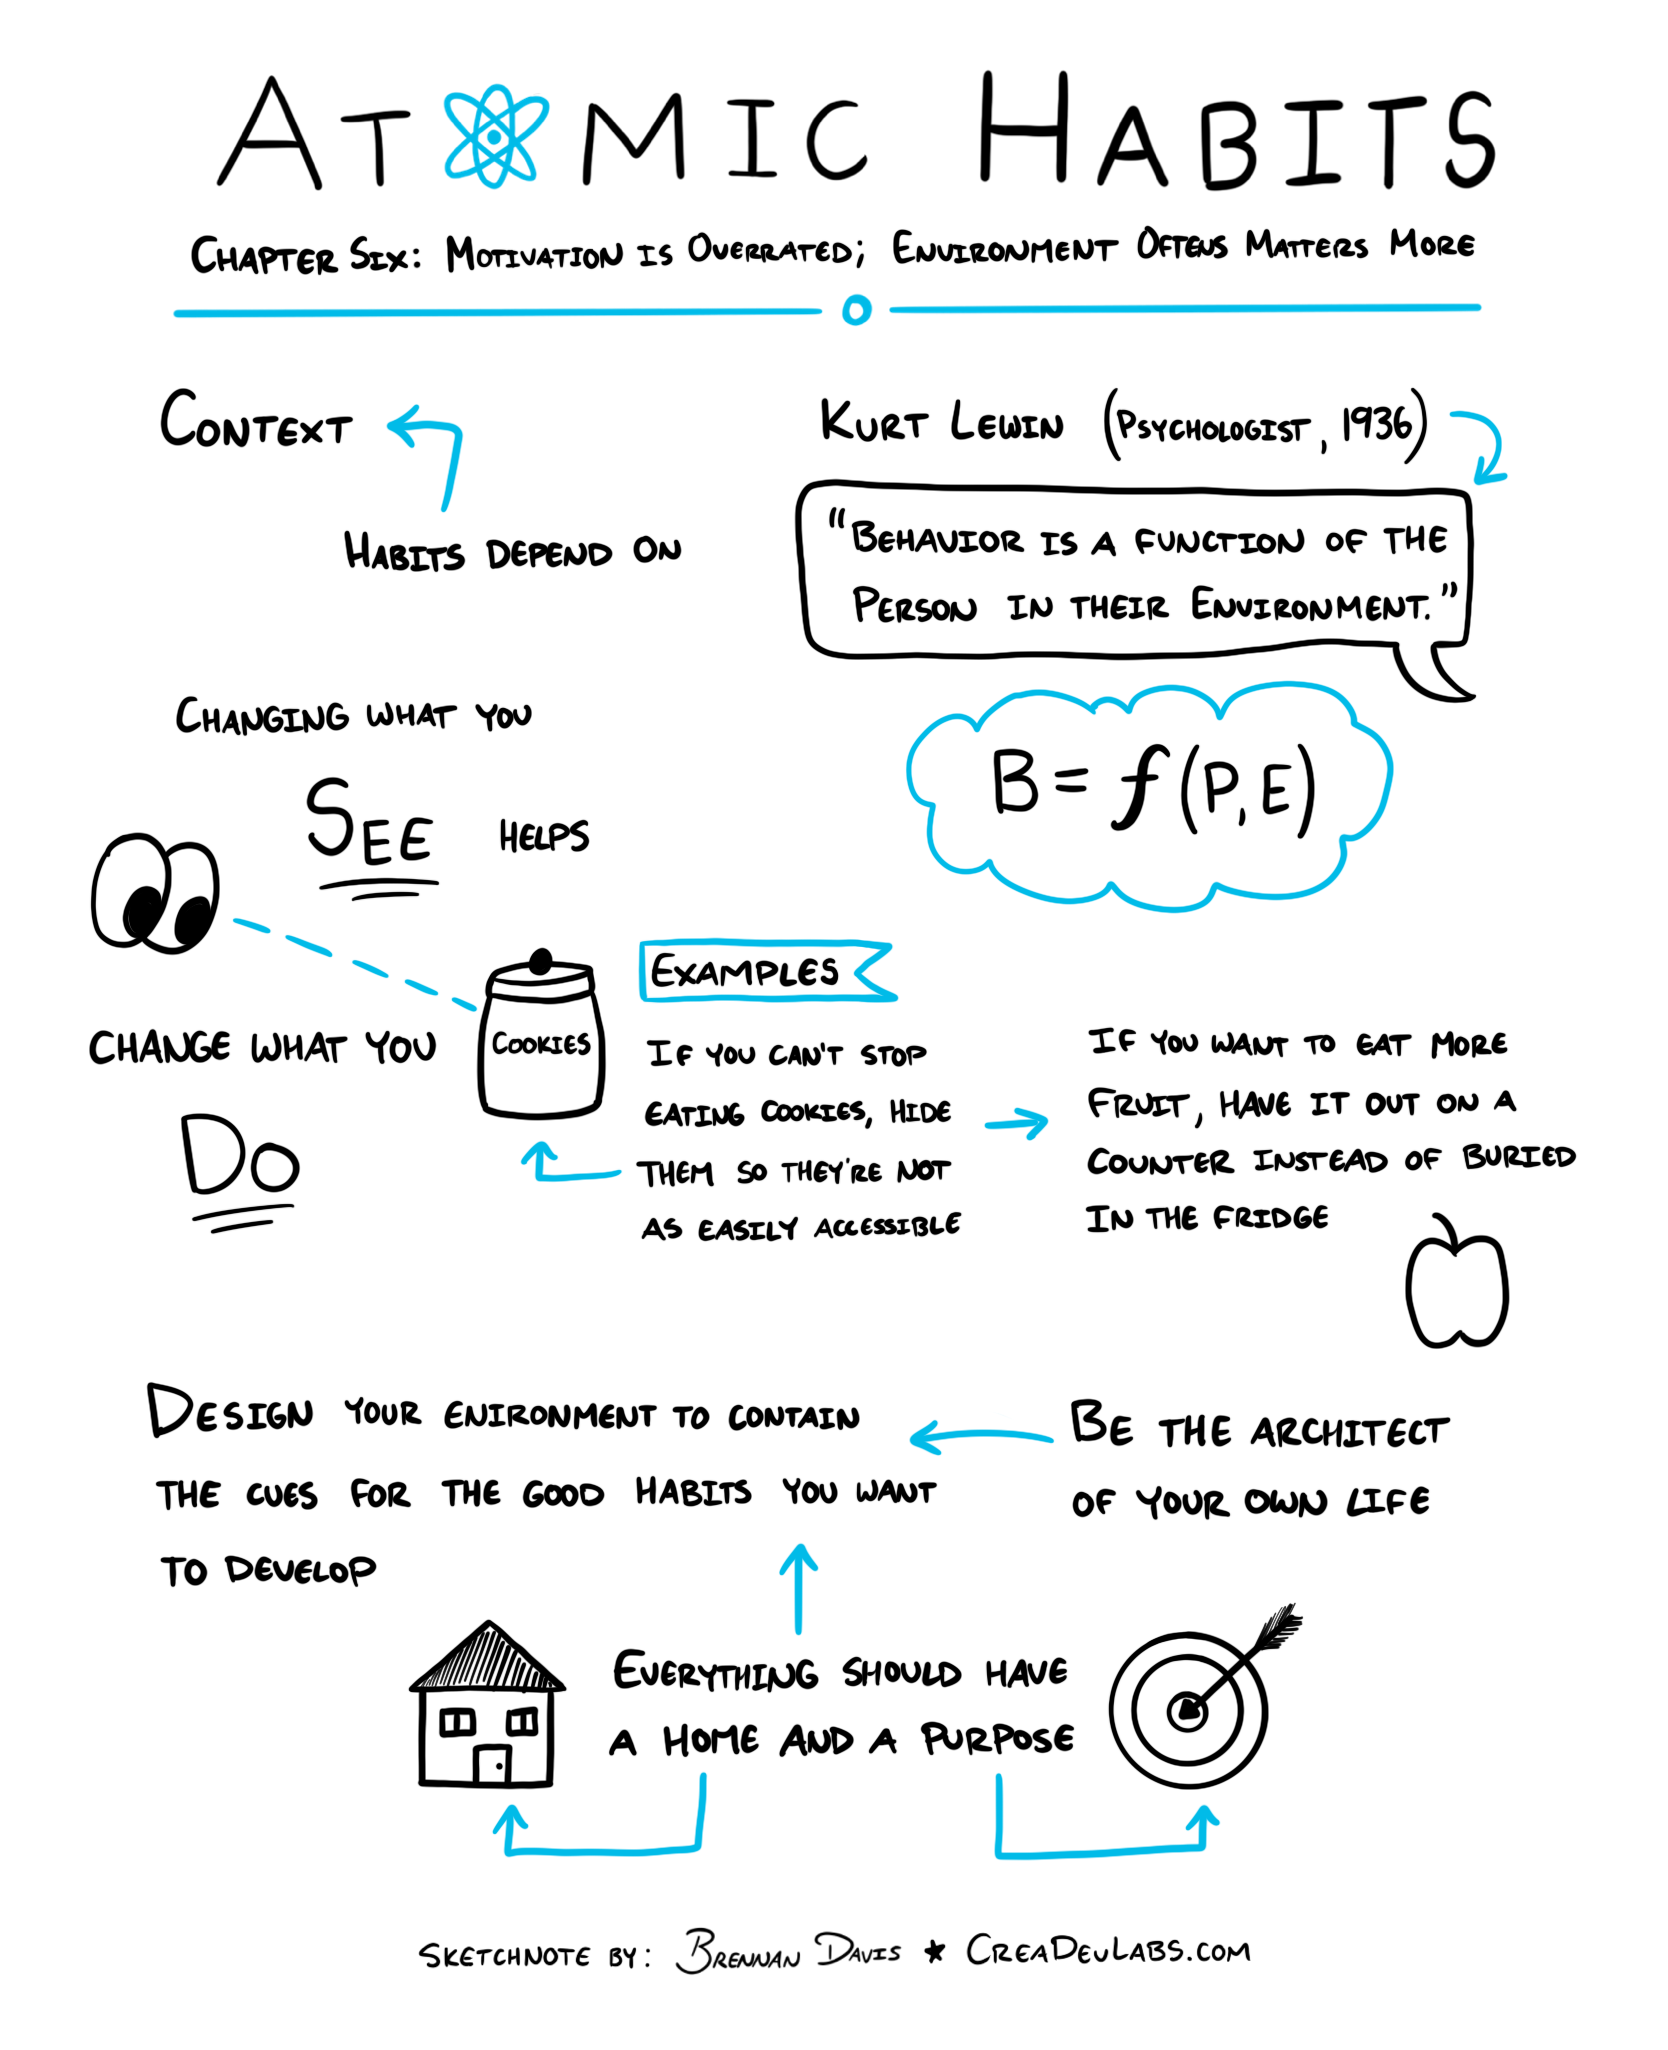 ATOMIC HABITS
CHAPTER SIX: MOTIVATION IS OVERRATED; ENVIRONMENT OFTENS MATTERS MORE
CONTEXT
HABITS DEPEND ON
KURT LEWIN (PSYCHOLOGIST, 1936)
"BEHAVIOR IS A FUNCTION OF THE
PERSON IN THEIR ENVIRONMENT."
B = f (P, E)
CHANGING WHAT YOU
SEE HELPS
CHANGE WHAT YOU
DO
COOKIES
EXAMPLES
IF YOU CAN'T STOP
EATING COOKIES, HIDE
THEM SO THEY'RE NOT
AS EASILY ACCESSIBLE
IF YOU WANT TO EAT MORE
FRUIT, HAVE IT OUT ON A
COUNTER INSTEAD OF BURIED
IN THE FRIDGE
DESIGN YOUR ENIRONMENT TO CONTAIN
THE CUES FOR THE GOOD HABITS YOU WANT
TO DEVELOP
BE THE ARCHITECT
OF YOUR OWN LIFE
EVERYTHING SHOULD HAVE
A HOME AND A PURPOSE
SKETCHNOTE BY: BRENNAN DAVIS ★ CREADEVLABS.COM